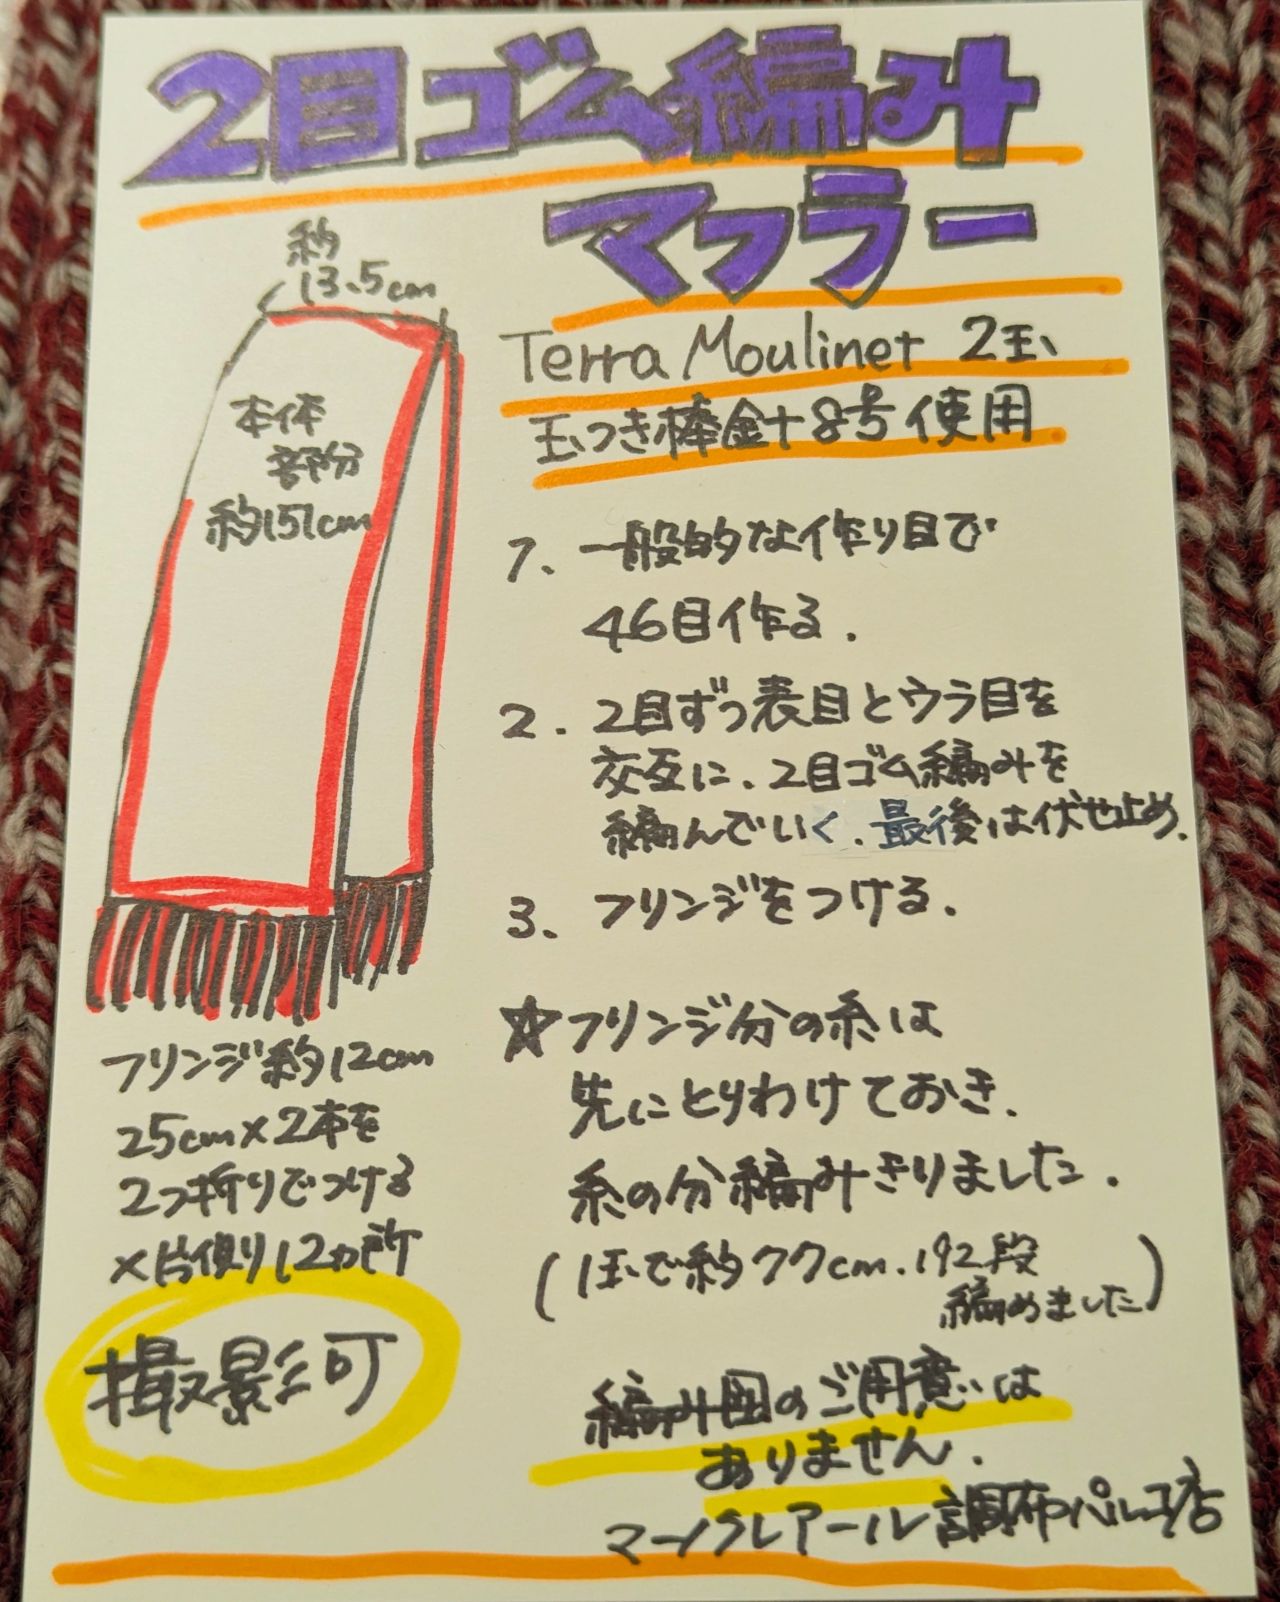 2目ゴム編み
マフラー
約
13.5cm
本体
部分
約151cm
Terra Moulinet 2玉
玉つき棒金十8号使用
1. 一般的な作り目で
46目作る.
2. 2目ずつ表目とウラ目を
交互に、2目ゴム編みを
編んでいく.最後は伏せ止め.
3、フリンジをつける.
フリンジ約12cm
25cm×2本を
2つ折りでつける
×片側12ヵ所
撮影可
☆フリンジ分の糸は
先にとりわけておき、
糸の分編みきりました.
(1玉で約77cm.192段
編めました)
編み図のご用意は
ありません.
マノクレアール調布パルコ店